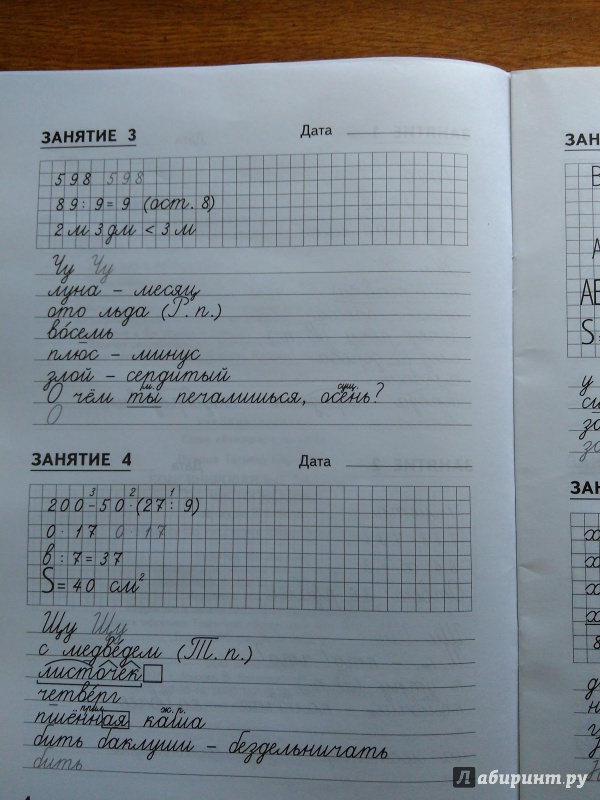 ЗАНЯТИЕ 3 Дата
598 598
89 : 9 = 9 (ост. 8)
2 м 3 дм < 3 м
Чу Чу
луна – месяц
ото льда (Р. п.)
во́семь
плюс – минус
злой – сердитый
м. сущ.
О чём ты печалишься, осень?
О
ЗАНЯТИЕ 4 Дата
3 2 1
200 - 50 · (27 : 9)
0 · 17 0 · 17
в : 7 = 37
S = 40 см²
Щу Щу
с медве́дем (Т. п.)
листочек
четве́рг
прил. ж. р.
пшённая каша
бить баклуши – бездельничать
бить
ЗАН
В
А
АВ
S =
у
си
за
за
ЗАН
х
х
х
х
8
д
н
у
Лабиринт.ру